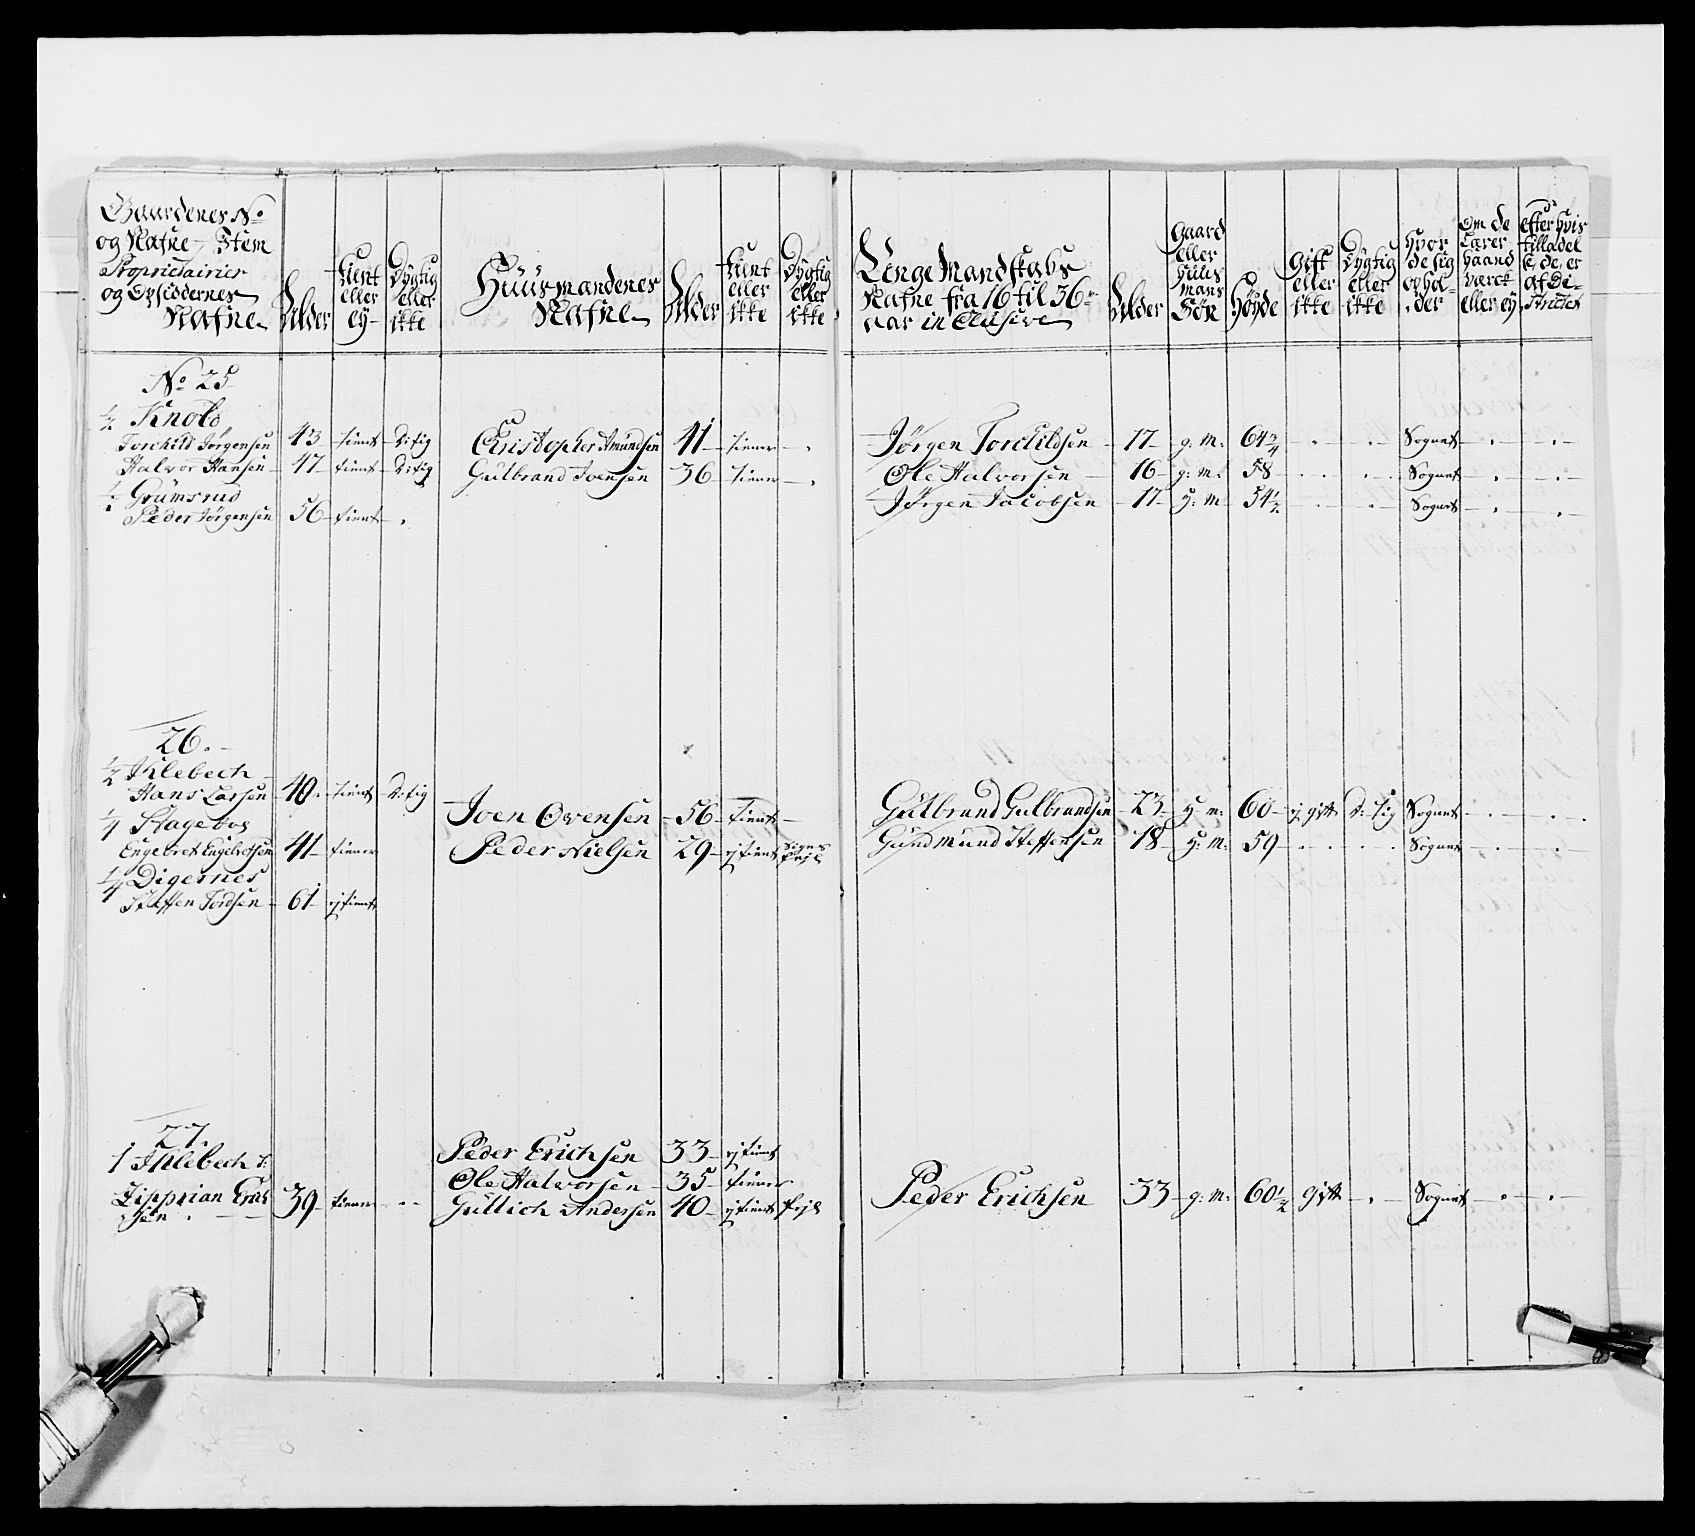 Gaardenes No
og Nafne, Item
Proprietairier
og Opsiddernes
Nafne
Alder
tient
eller
ey
Dygtig
eller
ikke
Huusmandenes
Nafne
Alder
tient
eller
ikke
Dygtig
eller
ikke
Unge Mandskabs
Nafne fra 16 til 36
aar inclusive
Alder
Gaard
eller
Huus
mans
Søn
Høyde
Gift
eller
ikke
Dygtig
eller
ikke
Hvor
de sig
ophol-
der
Om de
Lærer
haand
værck
eller ey
efter hvis
tilladel
se de er
af Di-
strictet
No 25
1/2 Knold
Torchild Jørgensen 43 tient d:tig Christopher Amundsen 41 tiener Jørgen Torchildsen 17 g. m. 64 3/4 Sognet
Halvor Hansen 47 tient d:tig Gulbrand Joensen 36 tiener Ole Halvorsen 16 g: m: 58 Sognet
1/2 Grumsrud
Peder Jørgensen 56 tient Jørgen Jacobsen 17 h: m 54 1/2 Sognet
26.
1/2 Klebech
Hans Larsen 40 tient d:tig
1/4 Stagebog
Joen Ovensen 56 tient Gulbrand Gulbrandsen 23 h m: 60 ej gift d:tig Sognet
Engebret Engebretsen 41 tiener Peder Nielsen 29 ej tient Gundmund Steffensen 18 h: m: 59 Sognet
1/4 Digernes
Steffen Tordsen 61 ej tient
27.
1 Klebech Peder Erichsen 33 ej tient
Zipprian Erich 39 tiener Ole Halvorsen 35 tiener Peder Erichsen 33 g: m: 60 1/2 Gift Sognet
sen Gullich Andersen 40 ej tient